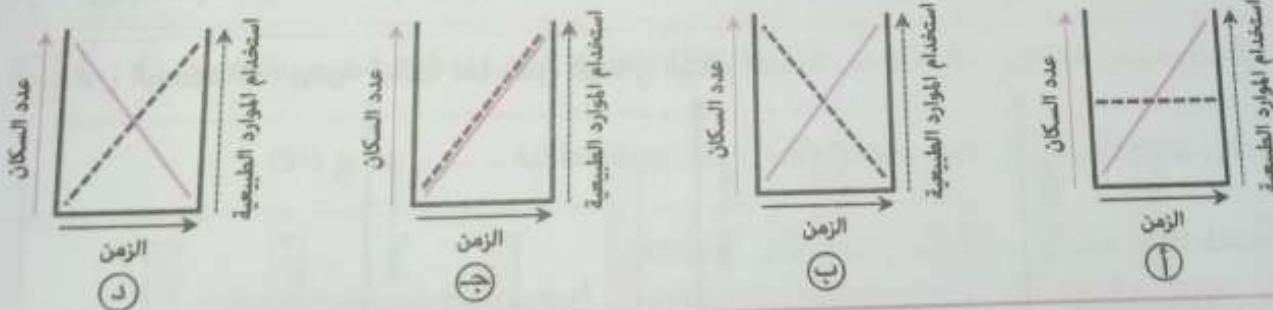 عدد السكان
استخدام الموارد الطبيعية
الزمن
أ
عدد السكان
استخدام الموارد الطبيعية
الزمن
ب
عدد السكان
استخدام الموارد الطبيعية
الزمن
ج
عدد السكان
استخدام الموارد الطبيعية
الزمن
د